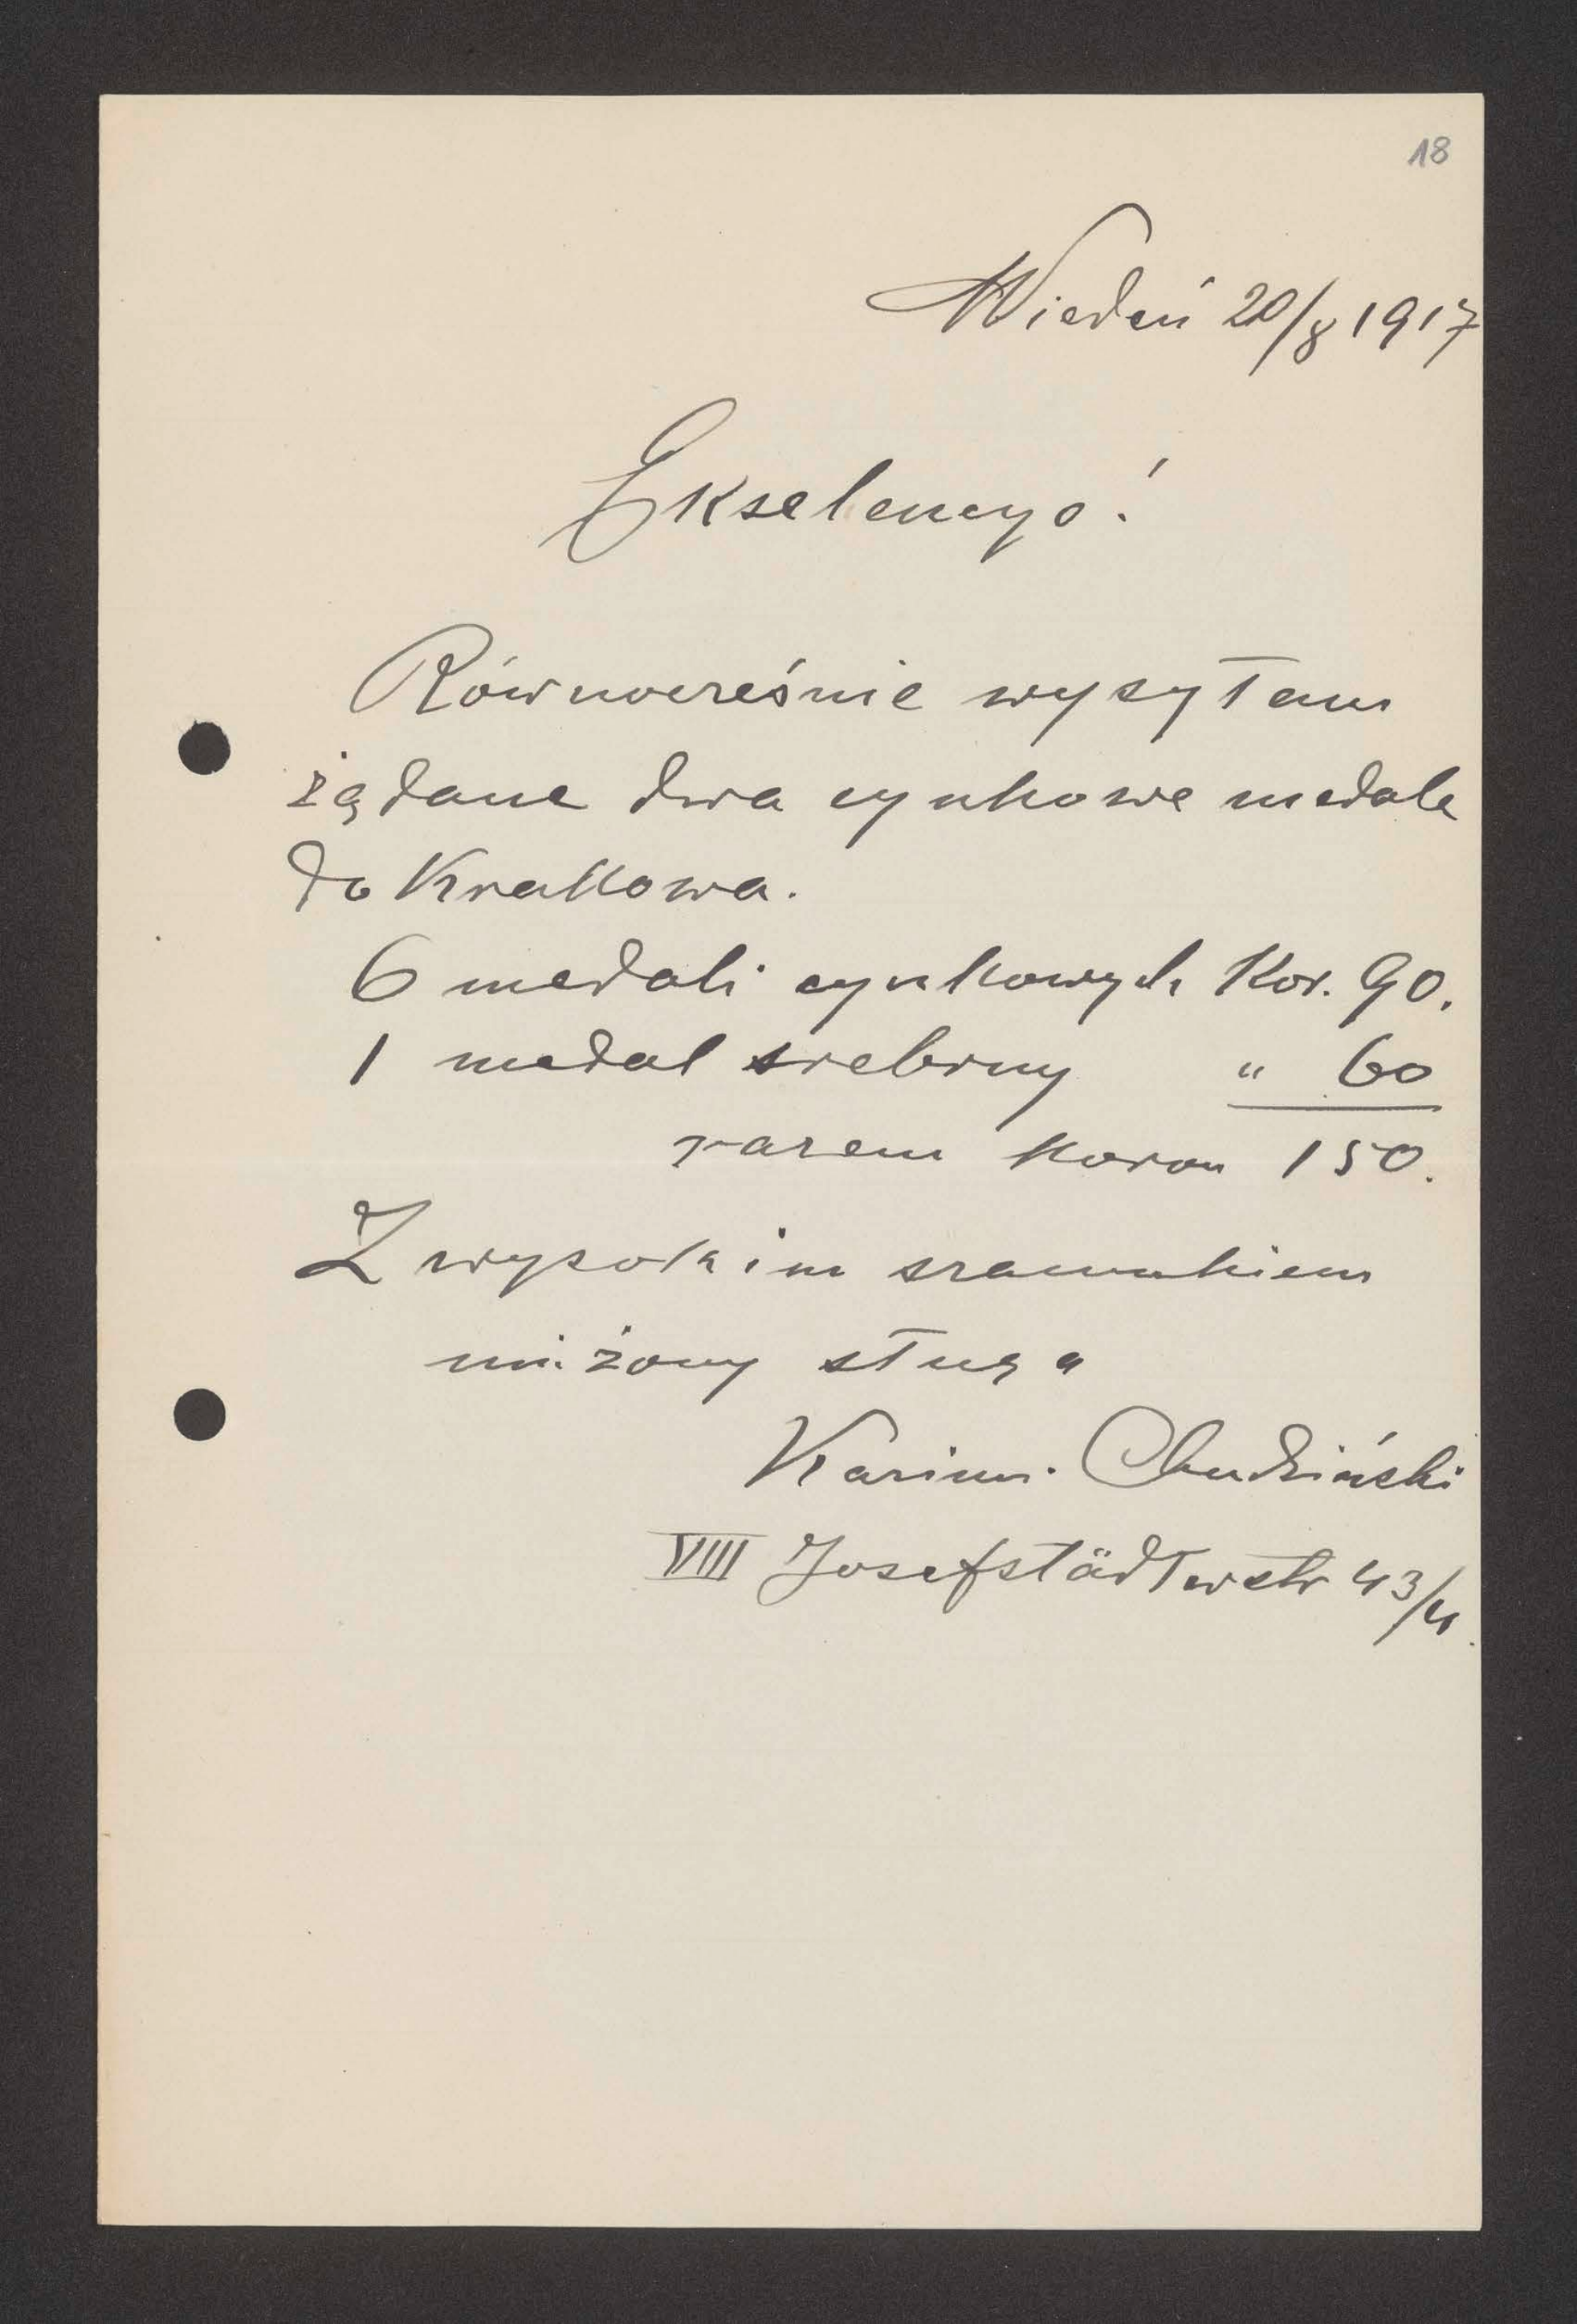 18
Wiedeń 20/8 1917
Ekselencyo!
Równocześnie wysyłam
żądane dwa cynkowe medale
do Krakowa.
6 medali cynkowych Kor. 90.
1 medal srebrny " 60
razem koron 150.
Z wysokim szacunkiem
uniżony sługa
Kazim. Chudziński
VIII Josefstädterstr 43/4.